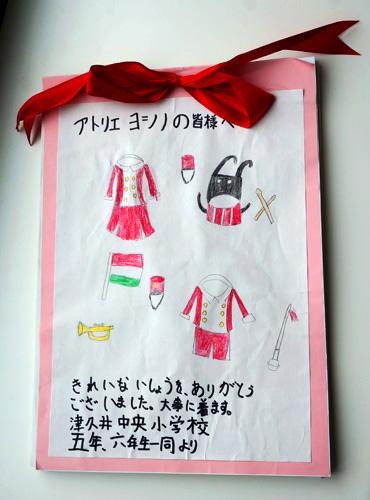 アトリエ ヨシノの皆様へ
きれいないしょうを、ありがとう
ございました。大事に着ます。
津久井中央小学校
五年、六年生一同より